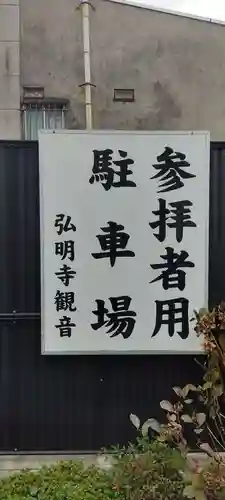 参拝者用
駐車場
弘明寺観音